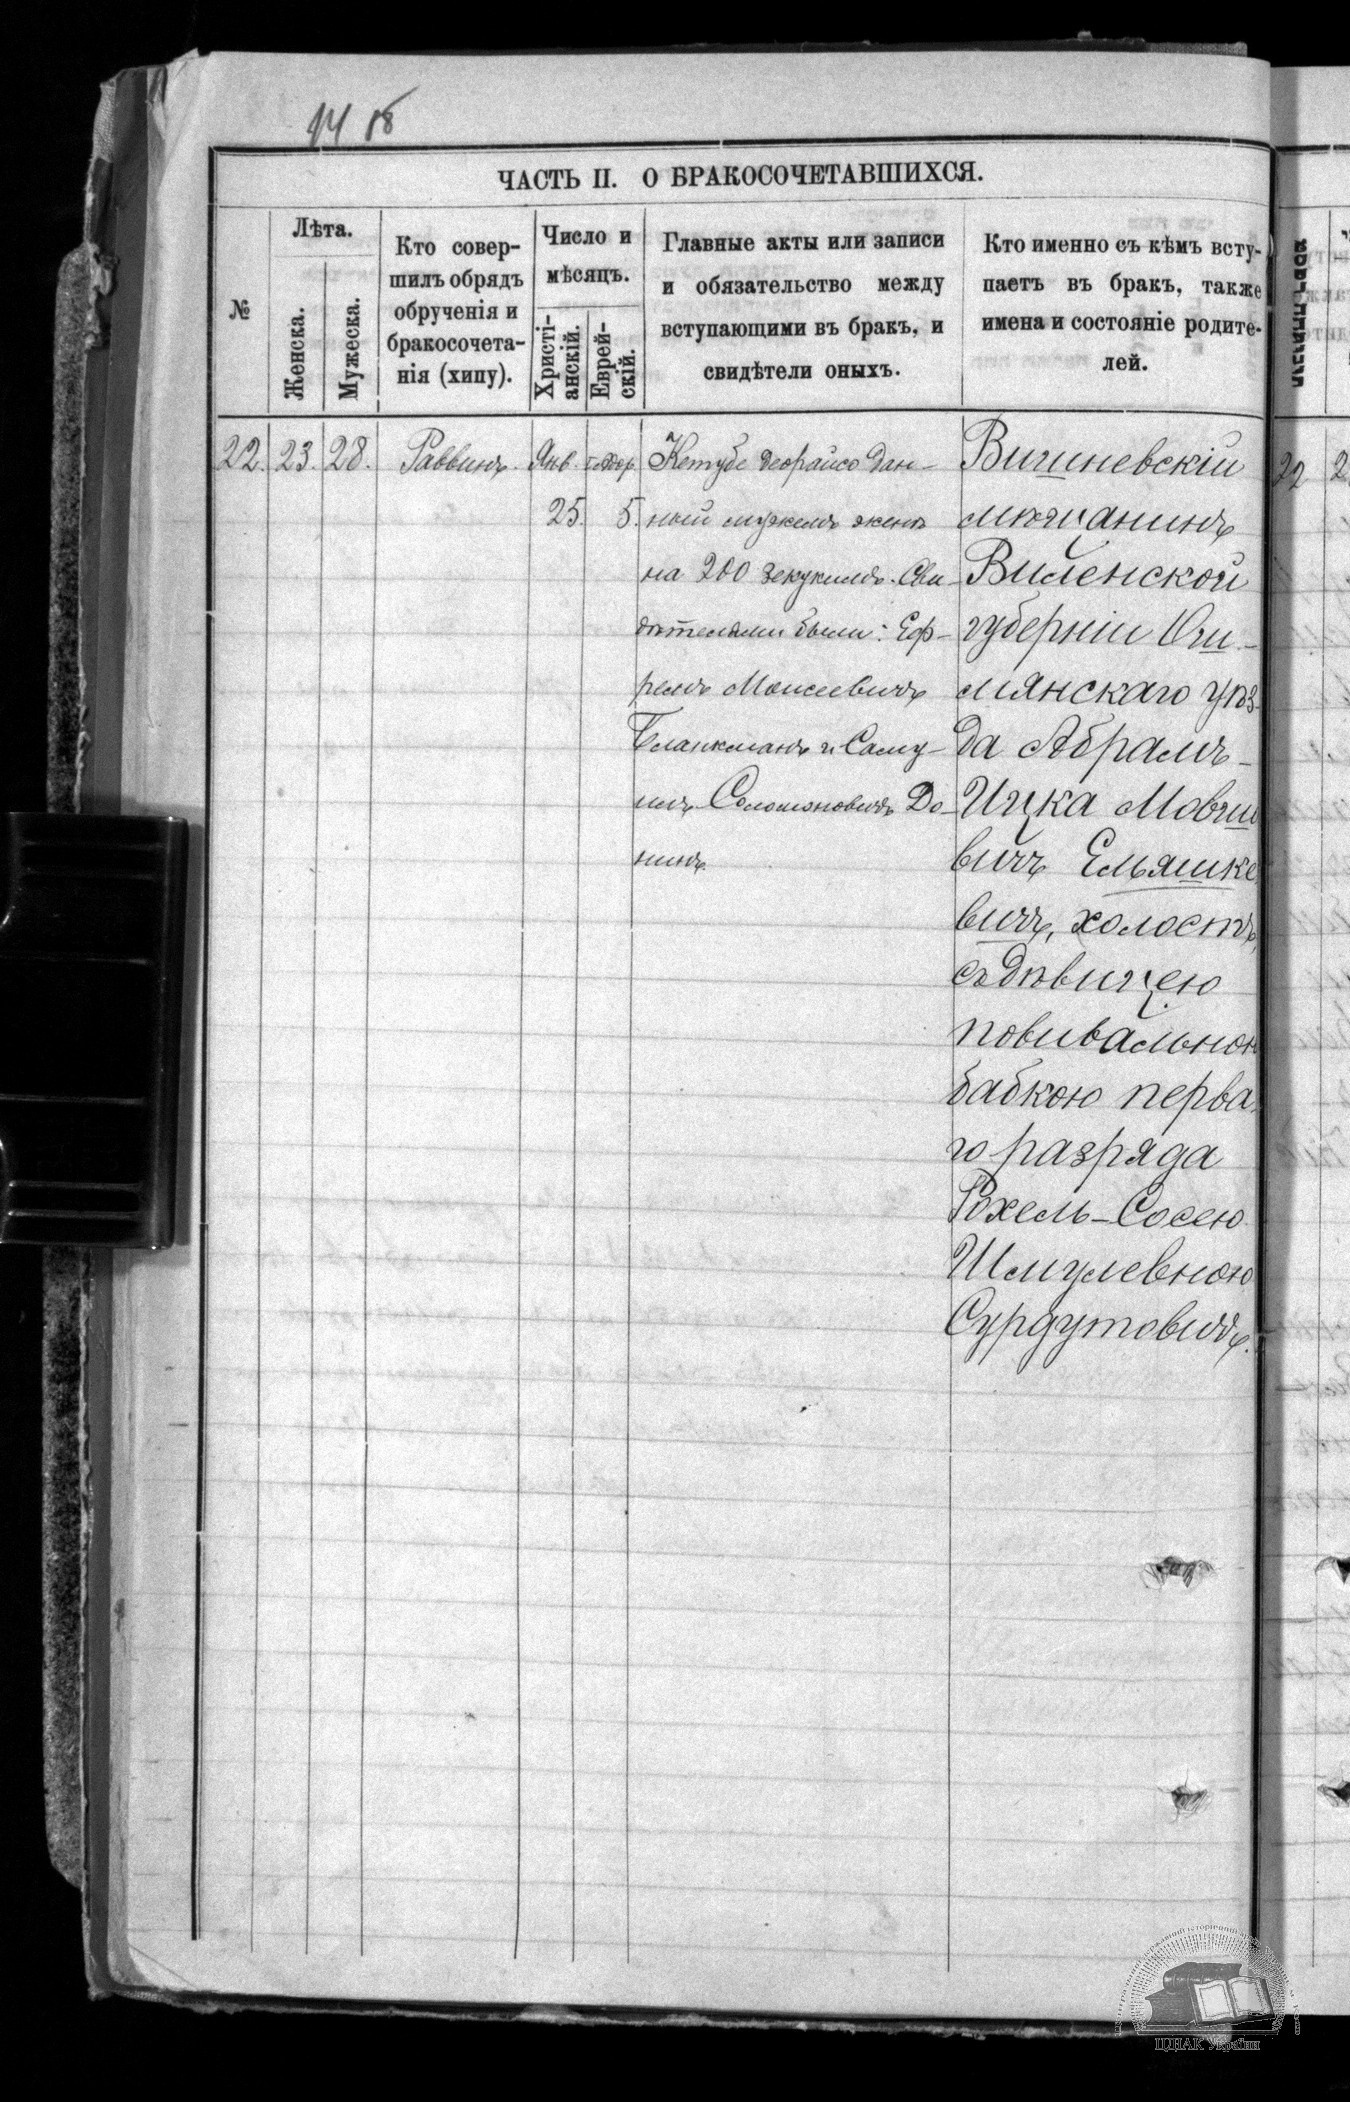 14 18
ЧАСТЬ II. О БРАКОСОЧЕТАВШИХСЯ.
№
Лѣта.
Женска.
Мужеска.
Кто совер-
шилъ обрядъ
обрученія и
бракосочета-
нія (хипу).
Число и
мѣсяцъ.
Христі-
анскій.
Еврей-
скій.
Главные акты или записи
и обязательство между
вступающими въ бракъ, и
свидѣтели оныхъ.
Кто именно съ кѣмъ всту-
паетъ въ бракъ, также
имена и состояніе родите-
лей.
22. 23. 28. Раввинъ. Янв. 25. 5.
Кетубе деорайсо дан-
ный мужемъ женѣ
на 200 зекукимъ. Сви-
дѣтелями были: Еф-
ремъ Моисеевичъ
Бланкманъ и Саму-
илъ Соломоновичъ До-
нинъ.
Вишневскій
мѣщанинъ
Виленской
губерніи Ош-
мянскаго уѣз-
да Абрамъ-
Ицка Мовшо
вичъ Ельяшке
вичъ, холостъ,
съ дѣвицею
повивальною
бабкою перва-
го разряда
Рохель-Сосею
Шмулевною
Сурдутовичъ.
22
ЦДІАК України